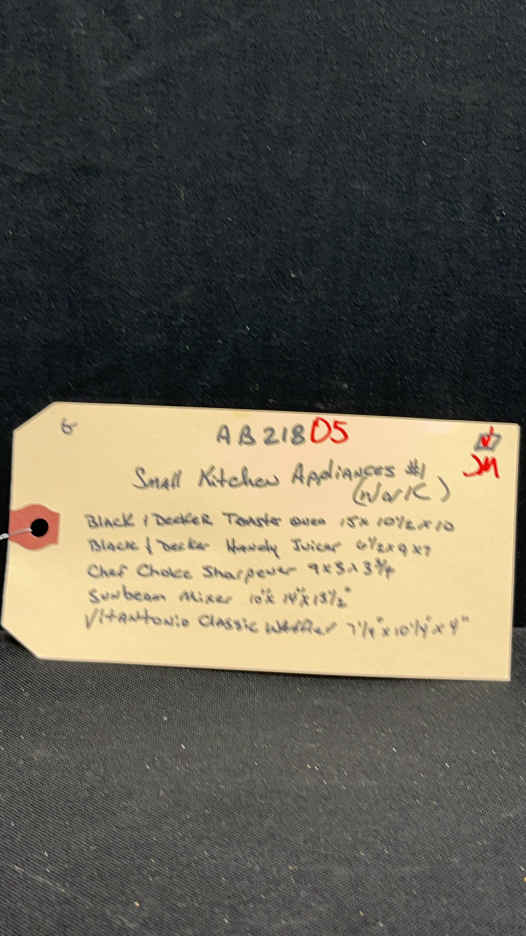 G AB218D5
JM
Small Kitchen Appliances #1
(WORK)
Black & Decker Toaster oven 15 x 10 1/2 x 10
Black & Decker Handy Juicer 6 1/2 x 9 x 7
Chef Choice Sharpener 9 x 5 x 3 3/4
Sunbeam Mixer 10" x 14" x 13 1/2"
VitAntonio Classic Waffler 7 1/4" x 10 1/4" x 4"